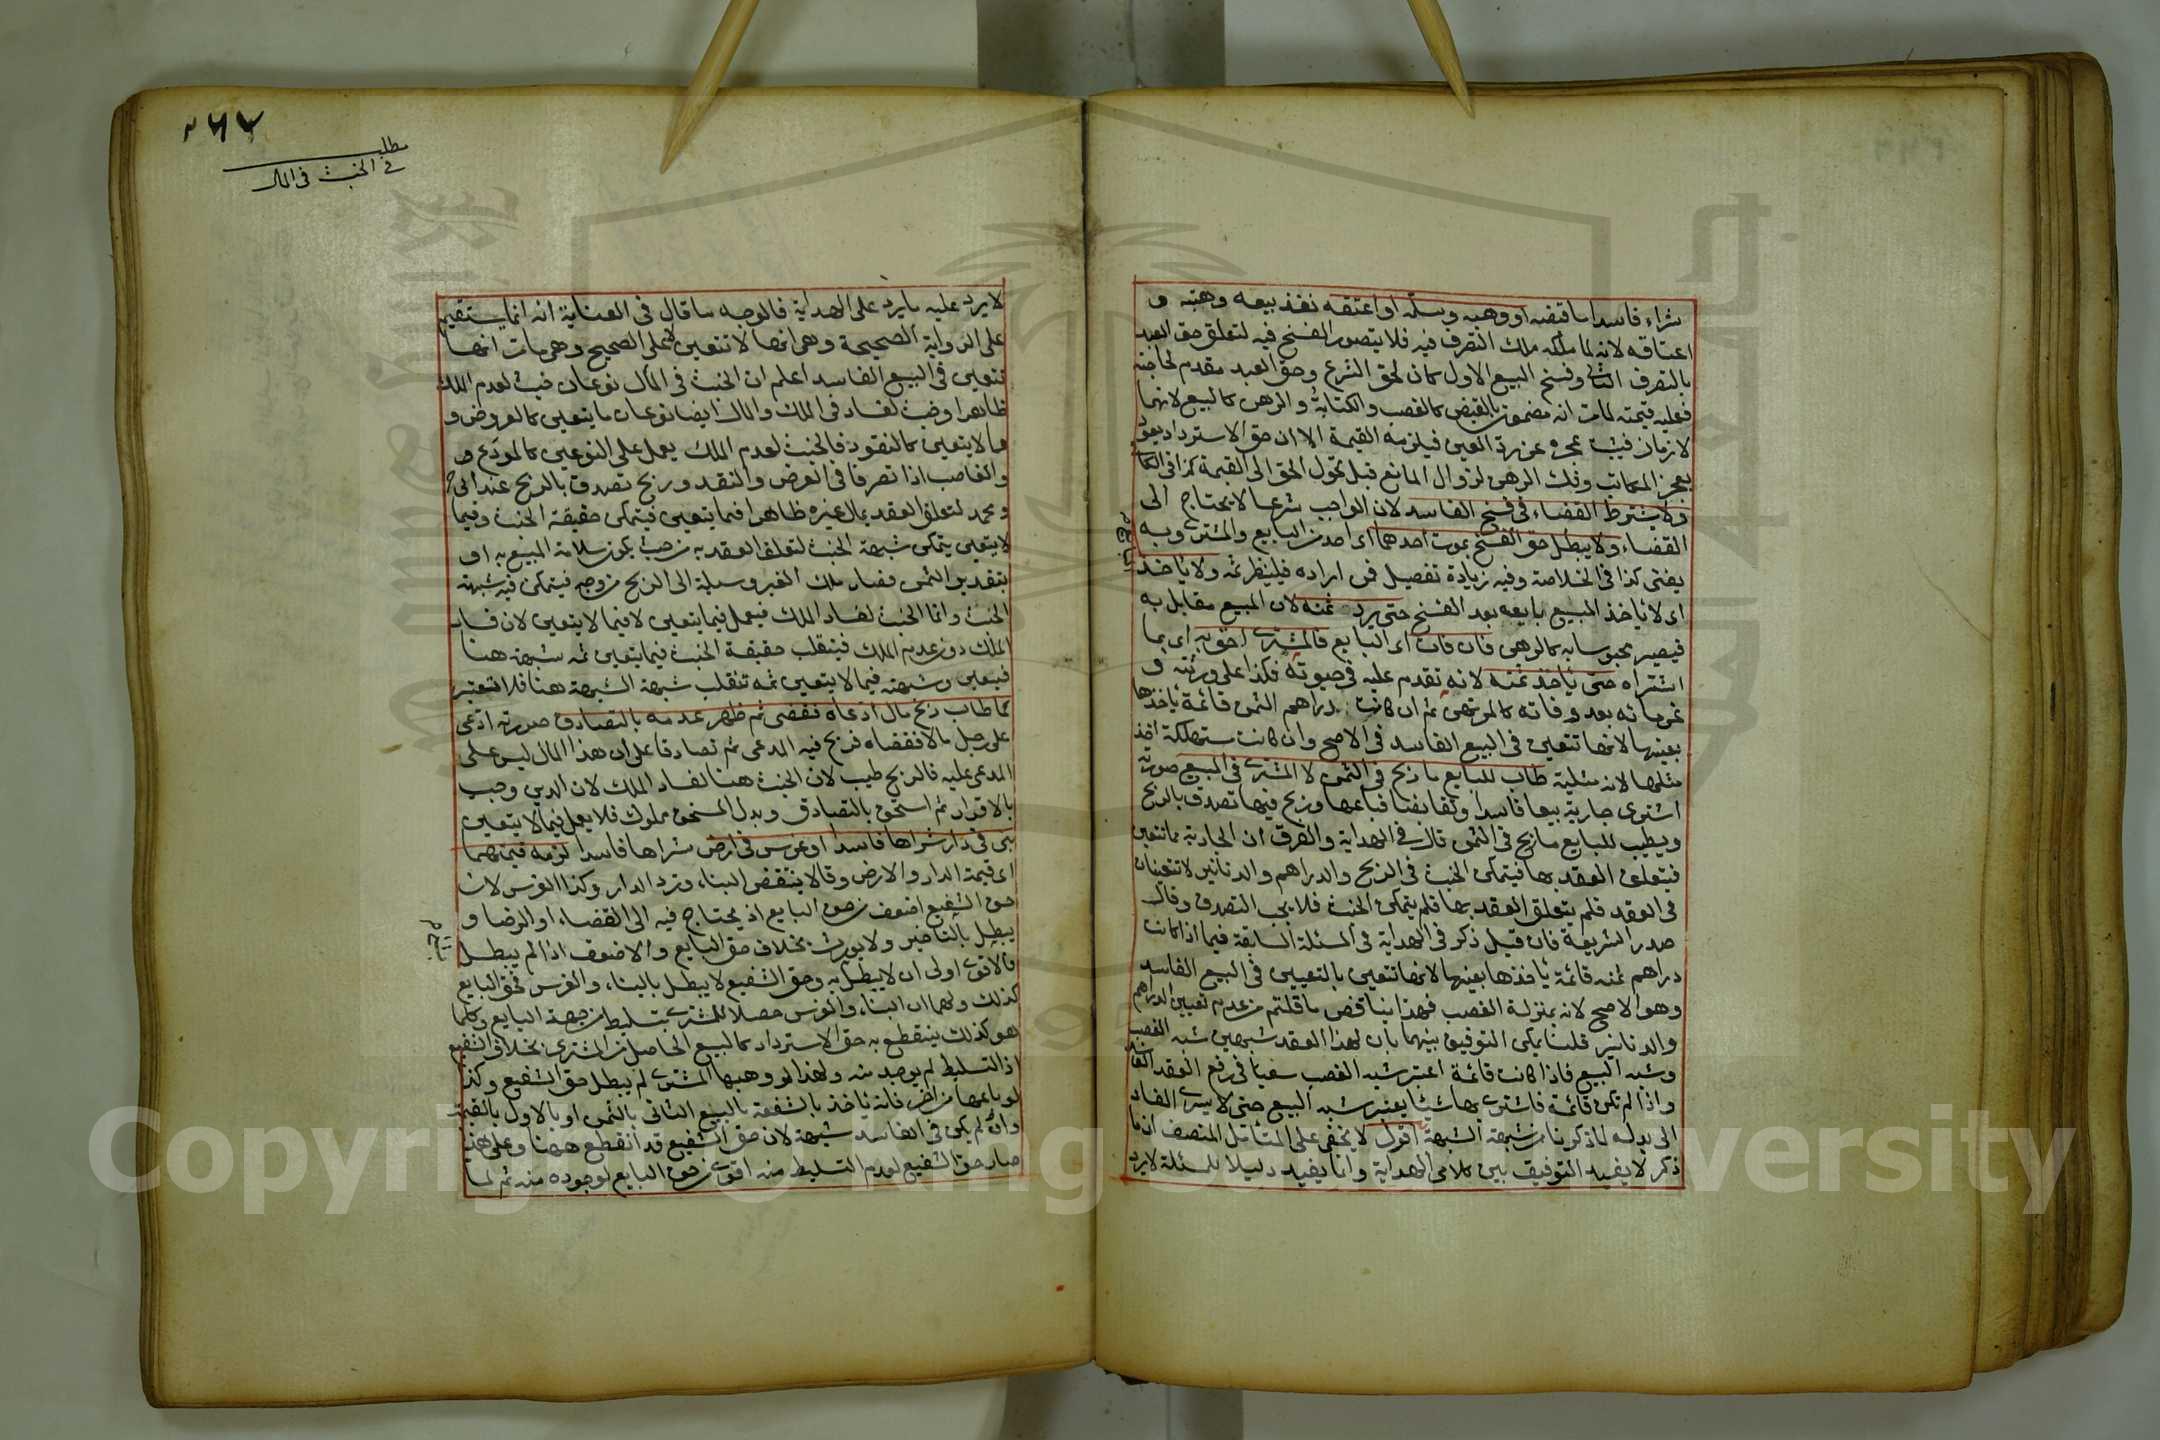 شراء فاسدا ما قبضه او وهبه وسلمه او اعتقه نفذ بيعه وهبته و
اعتاقه لانه لما ملكه ملك التصرف فيه فلا يتصور الفسخ فيه لتعلق حق العبد
بالتصرف الثاني وفسخ البيع الاول كان لحق الشرع وحق العبد مقدم لحاجته
فعليه قيمته لما مر انه مضمون بالقبض كالغصب والكتابة والرهن كالبيع لانهما
لازمان فيثبت عجزه عن رد العين فيلزمه القيمة الا ان حق الاسترداد يعود
بعجز المكاتب وفك الرهن لزوال المانع قبل تحول الحق الى القيمة كذا في الكافي
ولا يشترط القضاء في فسخ الفاسد لان الواجب شرعا لا يحتاج الى
القضاء ولا يبطل حق الفسخ بموت احدهما اى احد من البايع والمشترى وبه
يفتى كذا في الخلاصة وفيه زيادة تفصيل فمن اراده فلينظر ثمه ولا ياخذ
اى لا ياخذ المبيع بايعه بعد الفسخ حتى يرد ثمنه لان المبيع مقابل به
فيصير محبوسا به كالرهن فان مات اى البايع فالمشترى احق به اى بما
اشتراه حتى ياخذ ثمنه لانه تقدم عليه في حيوته فكذا على ورثته و
غرمائه بعد وفاته كالمرتهن ثم ان كانت دراهم الثمن قائمة ياخذها
بعينها لانها تتعين في البيع الفاسد في الاصح وان كانت مستهلكة اخذ
مثلها لانه مثلية طاب للبايع ما ربح في الثمن لا المشترى في المبيع صورته
اشترى جارية بيعا فاسدا وتقابضا فباعها وربح فيها تصدق بالربح
ويطيب للبايع ما ربح في الثمن قال في الهداية والفرق ان الجارية مما تتعين
فيتعلق العقد بها فيتمكن الخبث في الربح والدراهم والدنانير لا تتعينان
في العقد فلم يتعلق العقد بها فلم يتمكن الخبث فلا يجب التصدق وقال
صدر الشريعة فان قيل ذكر في الهداية في المسئلة السابقة فيما اذا كانت
دراهم ثمنه قائمة ياخذها بعينها لانها تتعين بالتعيين في البيع الفاسد
وهو الاصح لانه بمنزلة الغصب فهذا يناقض ما قلتم من عدم تعيين الدراهم
والدنانير قلنا يمكن التوفيق بينهما بان لهذا العقد شبهين شبه الغصب
وشبه البيع فاذا كانت قائمة اعتبر شبه الغصب سعيا في رفع العقد الفاسد
واذا لم تكن قائمة فاشترى بها شيئا يعتبر شبه البيع حتى لا يسرى الفساد
الى بدله لما ذكرنا من شبهة الشبهة اقول لا يخفى على المتامل المنصف ان ما
ذكر لا يفيد التوفيق بين كلامى الهداية وانما يفيد دليلا للمسئلة لا يرد
٢٦٧
مطلب
في الخبث في المال
لا يرد عليه ما يرد على الهداية فالوجه ما قال في العناية انه انما يستقيم
على الرواية الصحيحة وهى انها لا تتعين لا على الصحيح وهى ما مر انها
تتعين في البيع الفاسد اعلم ان الخبث في المال نوعان خبث لعدم الملك
ظاهرا وخبث لفساد في الملك والمال ايضا نوعان ما يتعين كالعروض و
ما لا يتعين كالنقود فالخبث لعدم الملك يعمل على النوعين كالمودع
والغاصب اذا تصرفا في العرض والنقد وربح تصدق بالربح عند ابى ح
ومحمد لتعلق العقد بمال غيره ظاهرا فيما يتعين فيتمكن حقيقة الخبث وفيما
لا يتعين يتمكن شبهة الخبث لتعلق العقد به من حيث يكون سلامة المبيع به او
بتقدير الثمن فصار ملك الغير وسيلة الى الربح من وجه فيتمكن فيه شبهة
الخبث واما الخبث لفساد الملك فيعمل فيما يتعين لا فيما لا يتعين لان فساد
الملك دون عدم الملك فينقلب حقيقة الخبث فيما يتعين ثمه شبهة هنا
فيعين وشبهته فيما لا يتعين ثمه تنقلب شبهة الشبهة هنا فلا تعتبر
كما طاب ربح مال ادعاه فقضى ثم ظهر عدمه بالتصادق صورته ادعى
على رجل مالا فقضاه فربح فيه المدعى ثم تصادقا على ان هذا المال ليس على
المدعى عليه فالربح طيب لان الخبث هنا لفساد الملك لان الدين وجب
بالاقرار ثم استحق بالتصادق وبدل المستحق مملوك فلا يعمل فيما لا يتعين
بنى في دار شراها فاسدا او غرس في ارض شراها فاسدا لزمه قيمتهما
اى قيمة الدار والارض وقالا ينتقض البناء وترد الدار وكذا الغرس لان
حق الشفيع اضعف من حق البايع اذ يحتاج فيه الى القضاء او الرضا و
يبطل بالتاخير ولا يورث بخلاف حق البايع والاضعف اذا لم يبطل
فالاقوى اولى ان لا يبطل به وحق الشفيع لا يبطل بالبناء والغرس فحق البايع
كذلك ولهما ان البناء والغرس حصلا للمشترى بتسليط من جهة البايع وكلما
هو كذلك ينقطع به حق الاسترداد كالبيع الحاصل من المشترى بخلاف الشفيع
اذ التسليط لم يوجد منه ولهذا لو وهبها المشترى لم يبطل حق الشفيع وكذا
لو باعها من اخر فانه ياخذ بالشفعة بالبيع الثانى بالثمن او بالاول بالقيمة
وان لم يكن في الفاسد شبهة لان حق الشفيع قد انقطع ههنا وعلى هذا
صار حق الشفيع لعدم التسليط منه اقوى من حق البايع لوجوده منه ثم لما
Copyright © King Saud University